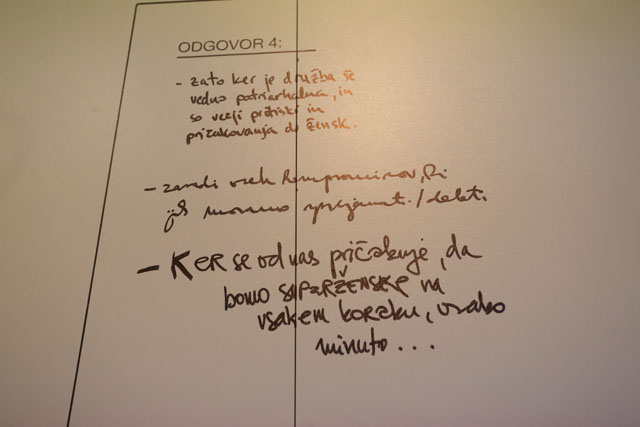 ODGOVOR 4:
- zato ker je družba še
vedno patriarhalna, in
so večji pritiski in
pričakovanja do žensk.
- zaradi vseh kompromisov, ki
jih moramo sprejemati / delati.
- KER se od nas pričakuje, da
bomo SUPERŽENSKE na
vsakem koraku, vsako
minuto...